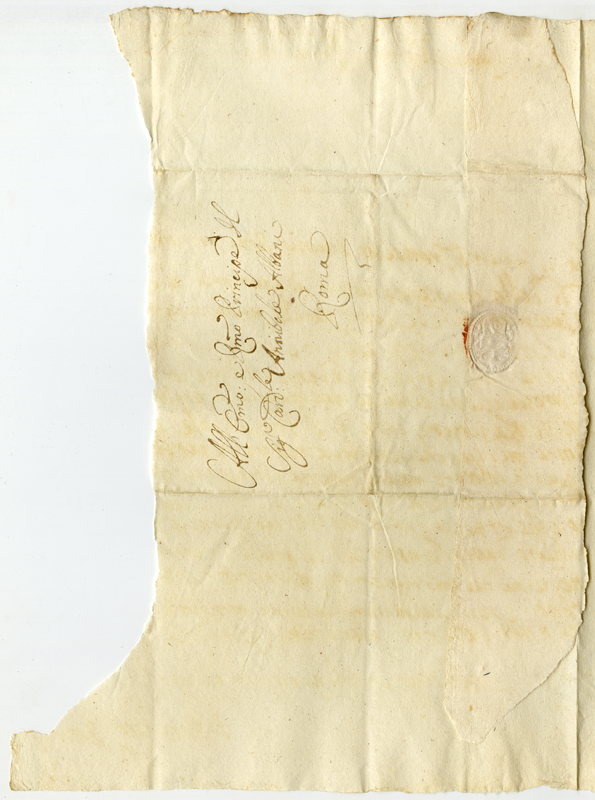 All' Emo: e Rmo Principe Il
Sigr Card:le Annibale Albani
Roma